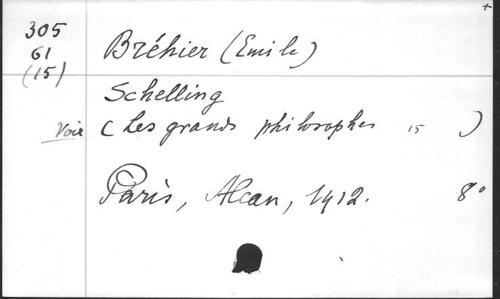 305
61
(15)
Bréhier (Emile)
Schelling
Voir (Les grands philosophes 15 )
Paris, Alcan, 1912. 8°